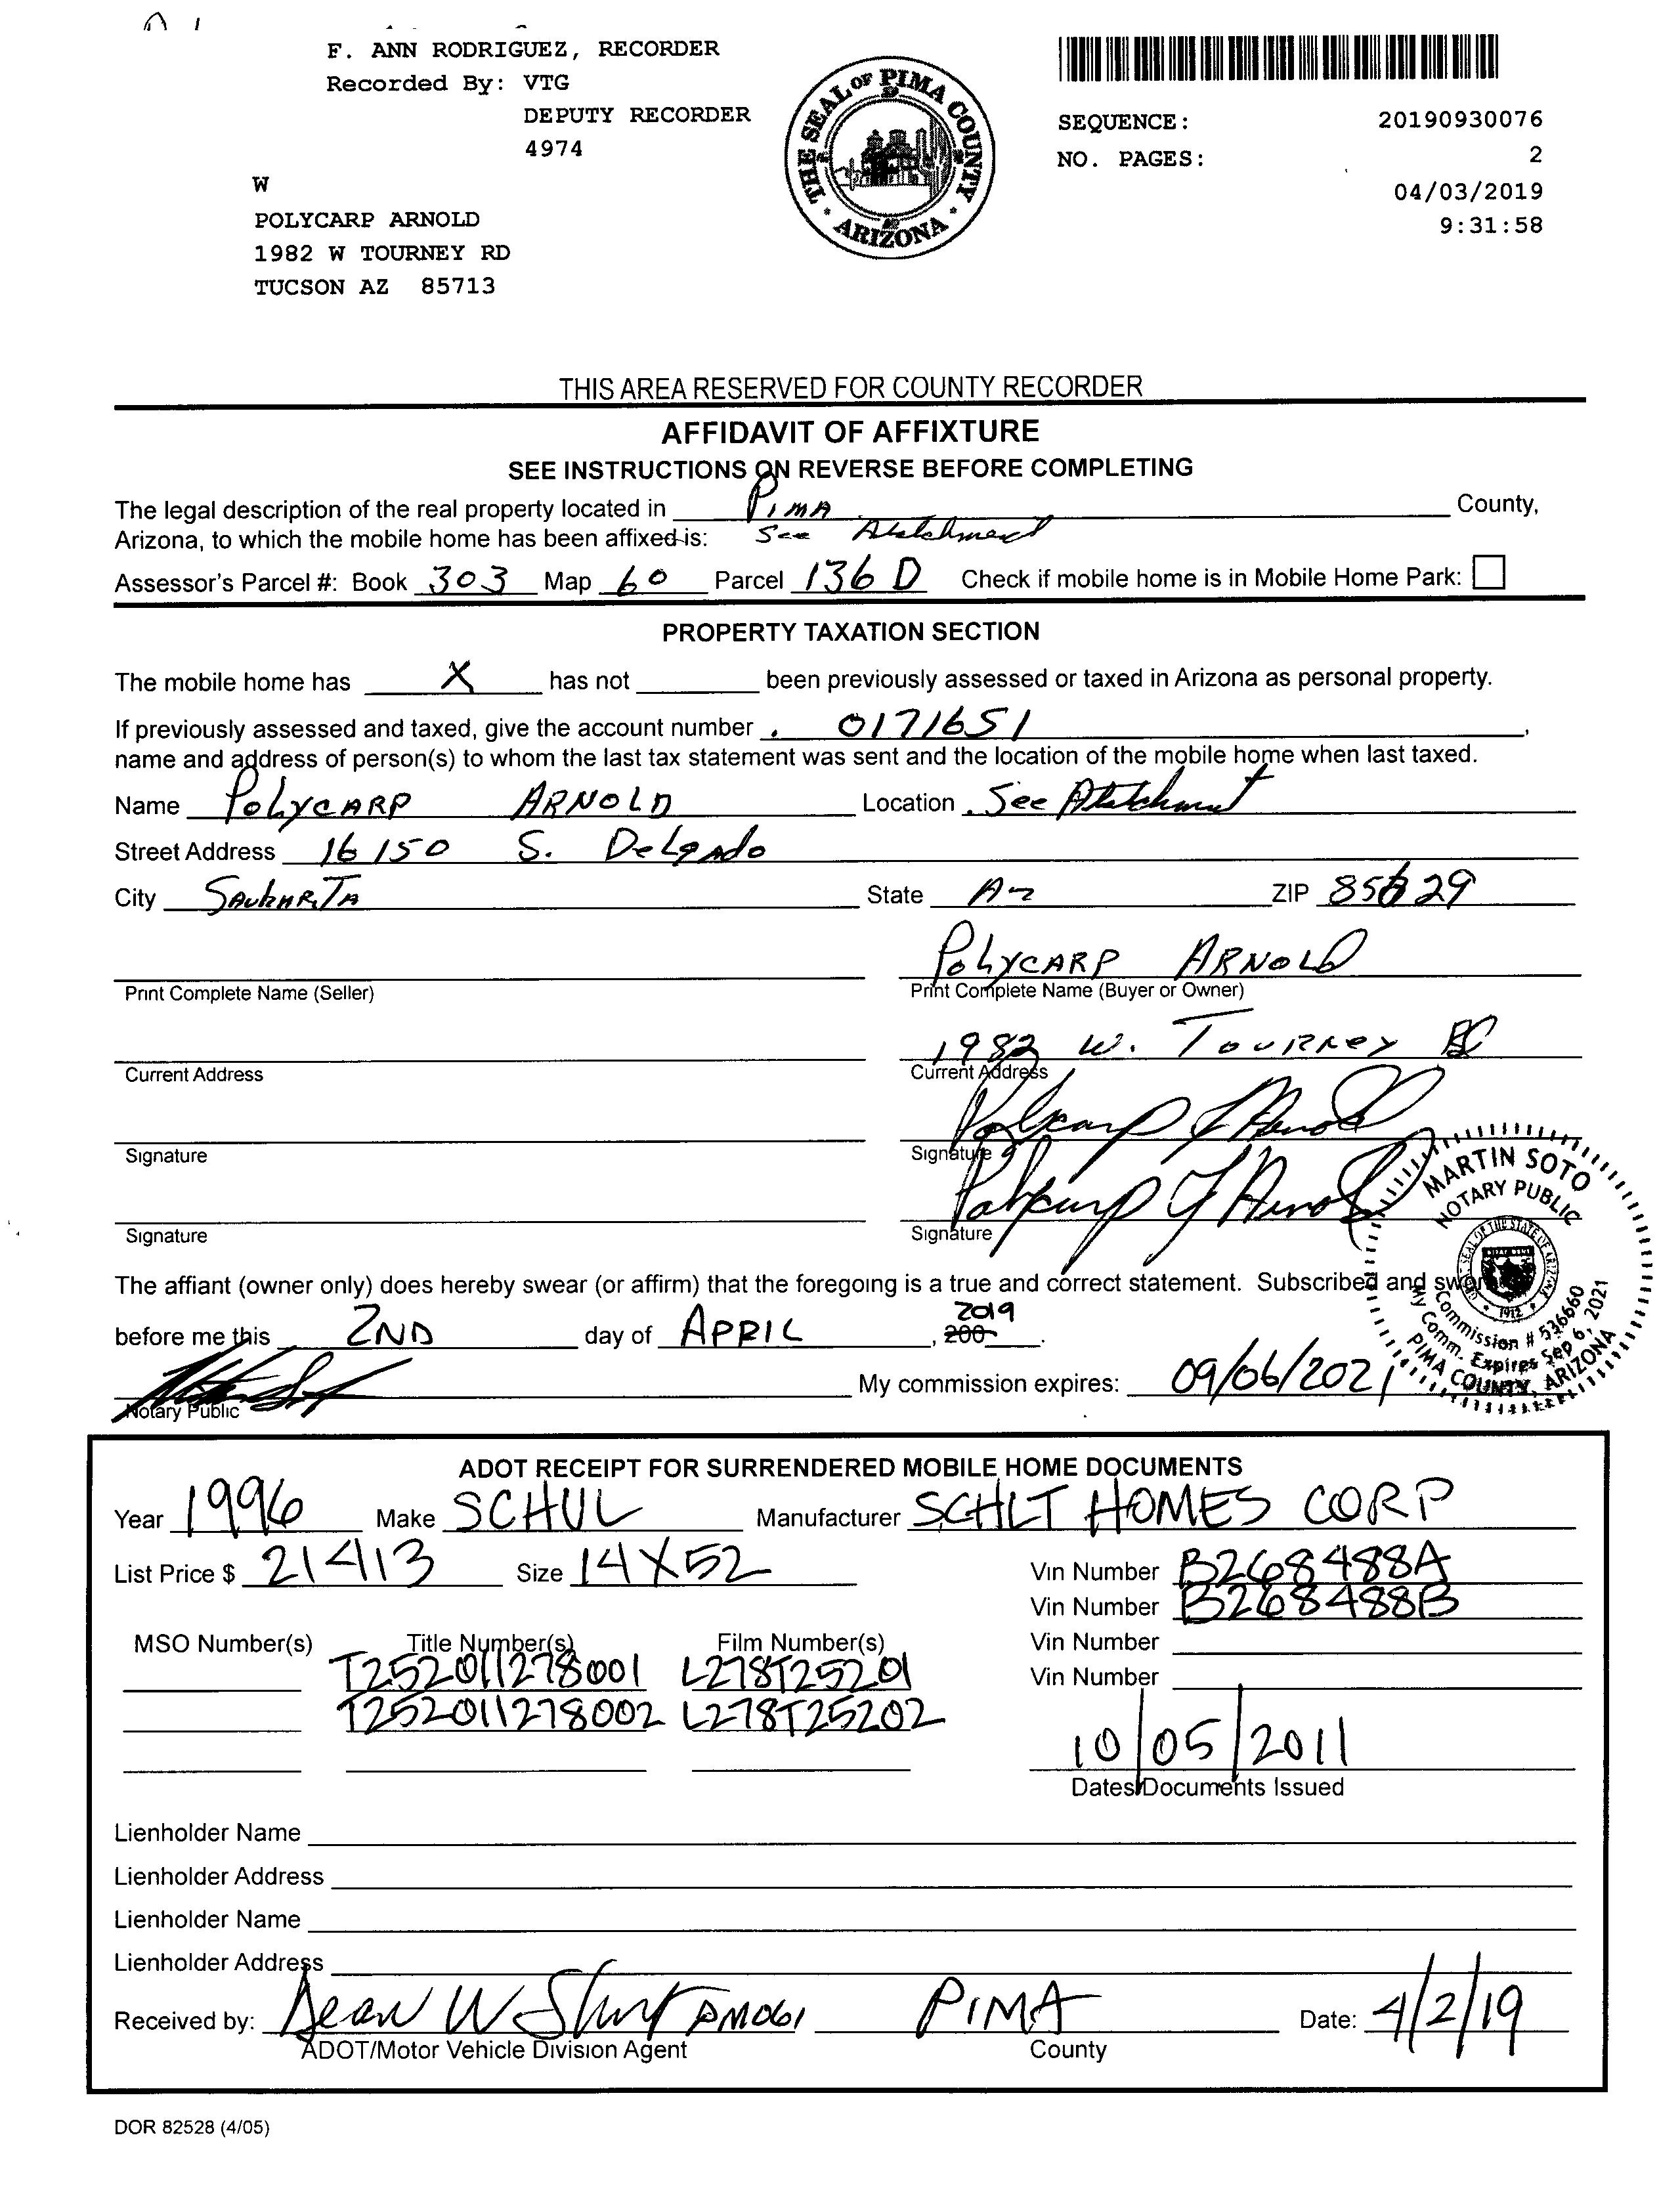 F. ANN RODRIGUEZ, RECORDER
Recorded By: VTG
DEPUTY RECORDER
4974
W
POLYCARP ARNOLD
1982 W TOURNEY RD
TUCSON AZ 85713
THE SEAL OF PIMA COUNTY
ARIZONA
SEQUENCE: 20190930076
NO. PAGES: 2
04/03/2019
9:31:58
THIS AREA RESERVED FOR COUNTY RECORDER
AFFIDAVIT OF AFFIXTURE
SEE INSTRUCTIONS ON REVERSE BEFORE COMPLETING
The legal description of the real property located in PIMA County,
Arizona, to which the mobile home has been affixed is: See Atatchment
Assessor's Parcel #: Book 303 Map 60 Parcel 136 D Check if mobile home is in Mobile Home Park:
PROPERTY TAXATION SECTION
The mobile home has X has not been previously assessed or taxed in Arizona as personal property.
If previously assessed and taxed, give the account number 0171651,
name and address of person(s) to whom the last tax statement was sent and the location of the mobile home when last taxed.
Name POLYCARP ARNOLD Location See Atatchment
Street Address 16150 S. DeLgado
City State Az ZIP 85629
POLYCARP ARNOLD
Print Complete Name (Seller) Print Complete Name (Buyer or Owner)
1982 W. TOURNEY
Current Address Current Address
Polycarp Arnold
Signature Signature
Polycarp Arnold
Signature Signature
MARTIN SOTO
NOTARY PUBLIC
SEAL OF THE STATE OF ARIZONA
1912
Commission # 536660
My Comm. Expires Sep 6, 2021
PIMA COUNTY, ARIZONA
The affiant (owner only) does hereby swear (or affirm) that the foregoing is a true and correct statement. Subscribed and sworn
2019
before me this 2ND day of APRIL, 200.
My commission expires: 09/06/2021
Notary Public
ADOT RECEIPT FOR SURRENDERED MOBILE HOME DOCUMENTS
Year 1996 Make SCHUL Manufacturer SCHLT HOMES CORP
List Price $ 21413 Size 14X52 Vin Number B268488A
Vin Number B268488B
MSO Number(s) Title Number(s) Film Number(s) Vin Number
T252011278001 L278T25201 Vin Number
T252011278002 L278T25202
10/05/2011
Dates Documents Issued
Lienholder Name
Lienholder Address
Lienholder Name
Lienholder Address
Received by: Dean W PIMA Date: 4/2/19
ADOT/Motor Vehicle Division Agent County
DOR 82528 (4/05)